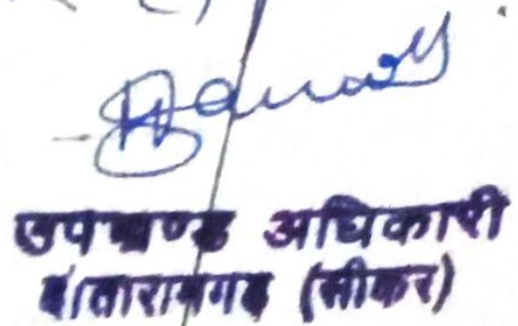 उपखण्ड अधिकारी
दांतारामगढ (सीकर)